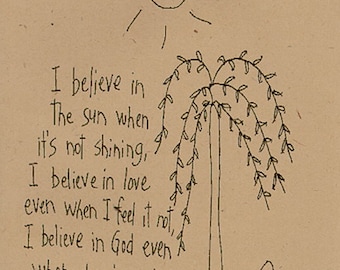 I believe in
the sun when
it's not shining,
I believe in love
even when I feel it not,
I believe in God even